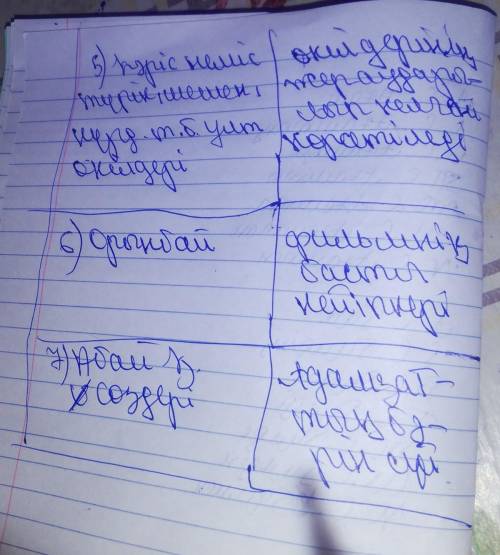 5) кәріс неміс
түрік, шешен,
күрд. т.б. ұлт
өкілдері
өкілдерінің
жер аудары-
лып келген
көрсетіледі
6) Орынбай
фильмнің
басты
кейіпкері
7) Абай қ.
сөздері
Адамзат-
тың бә-
рін сүй